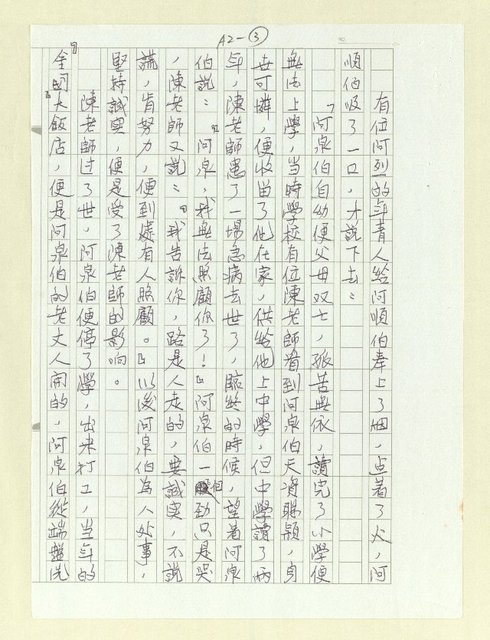 A2-③
有位阿烈的年青人給阿順伯奉上了烟，点着了火，阿
順伯吸了一口，才說下去：
「阿泉伯自幼便父母双亡，孤苦無依，讀完了小學便
無法上學，當時學校有位陳老師看到阿泉伯天資聰穎，身
世可憐，便收留了他在家，供給他上中學，但中學讀了兩
年，陳老師患了一場急病去世了，臨終的時候，望着阿泉
伯說：『阿泉，我無法照顧你了！』阿泉伯一但劲只是哭
，陳老師又說：『我告訴你，路是人走的，要誠实，不說
謊，肯努力，便到處有人照顧。』以後阿泉伯為人处事，
堅持誠实，便是受了陳老師的影响。
陳老師过了世，阿泉伯便停了學，出來打工，當年的
金國大飯店，便是阿泉伯的老丈人開的，阿泉伯從端盤洗